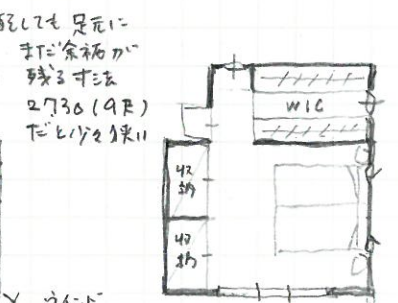 しても 足元に
まだ余裕が
残る寸法
2730(9尺)
だと少々狭い
WIC
収納
収納